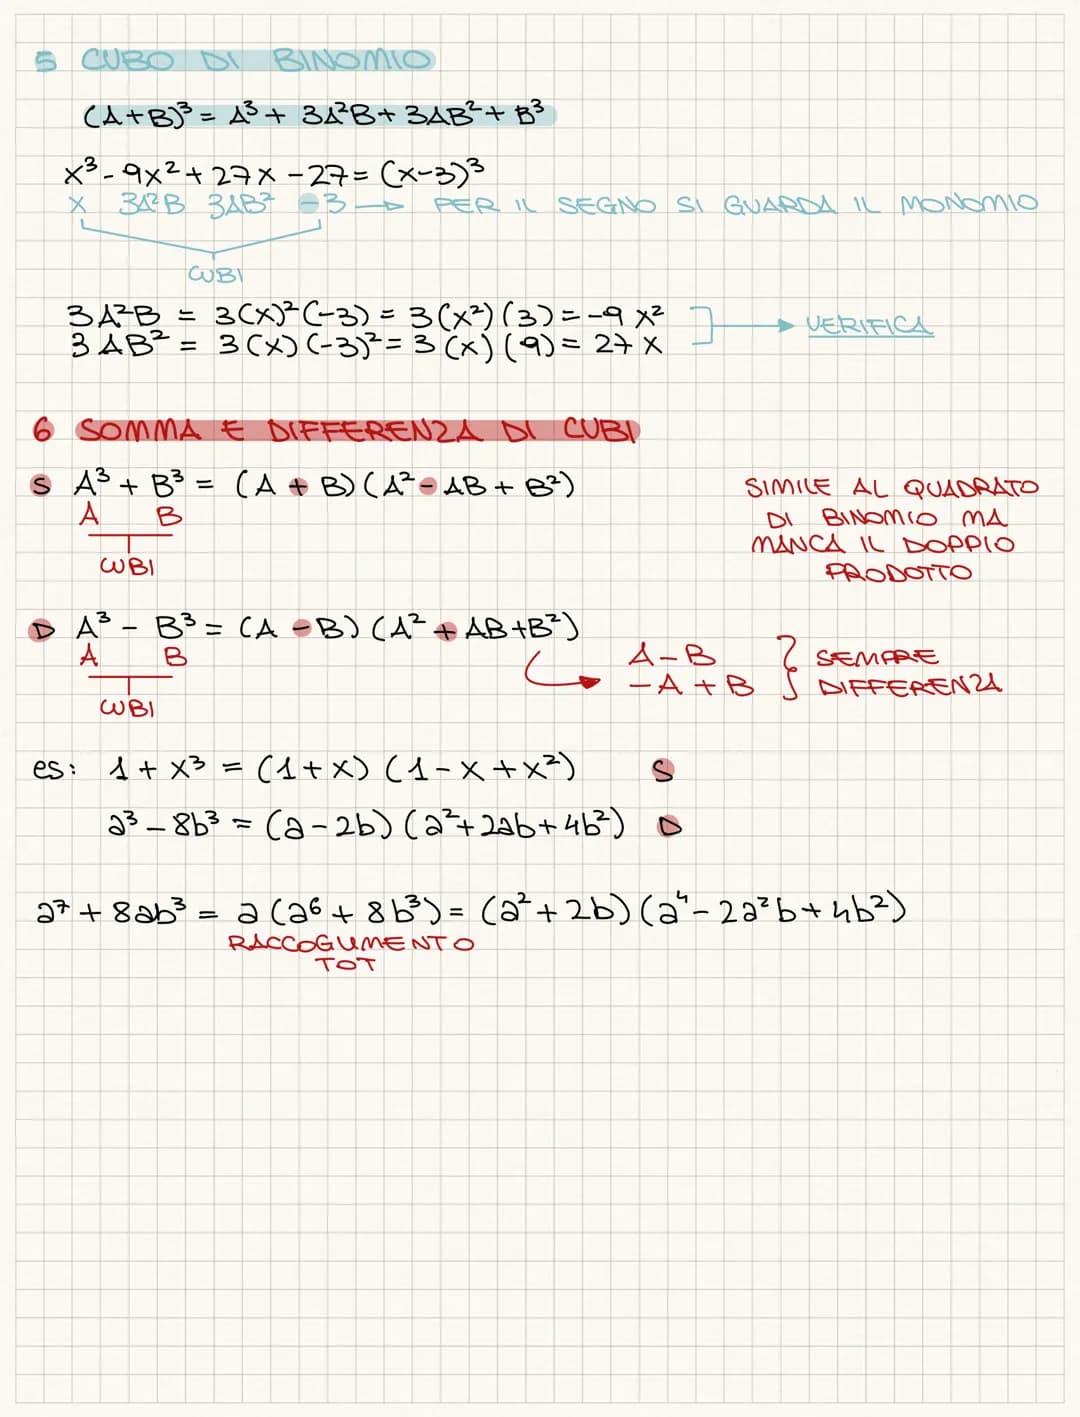 5 CUBO DI BINOMIO
(A+B)³ = A³ + 3A²B + 3AB² + B³
x³ - 9x² + 27x - 27 = (x-3)³
x 3A²B 3AB² -3 → PER IL SEGNO SI GUARDA IL MONOMIO
CUBI
3A²B = 3(x)²(-3) = 3(x²)(3) = -9x²
3AB² = 3(x)(-3)² = 3(x)(9) = 27x
→ VERIFICA
6 SOMMA E DIFFERENZA DI CUBI
S A³ + B³ = (A + B)(A² - AB + B²)
A B
CUBI
SIMILE AL QUADRATO
DI BINOMIO MA
MANCA IL DOPPIO
PRODOTTO
D A³ - B³ = (A - B)(A² + AB + B²)
A B
CUBI
A - B
- A + B
SEMPRE
DIFFERENZA
es: 1 + x³ = (1+x)(1-x+x²) S
a³ - 8b³ = (a-2b)(a²+2ab+4b²) D
a⁷ + 8ab³ = a(a⁶ + 8b³) = (a²+2b)(a⁴-2a²b+4b²)
RACCOGLIMENTO
TOT